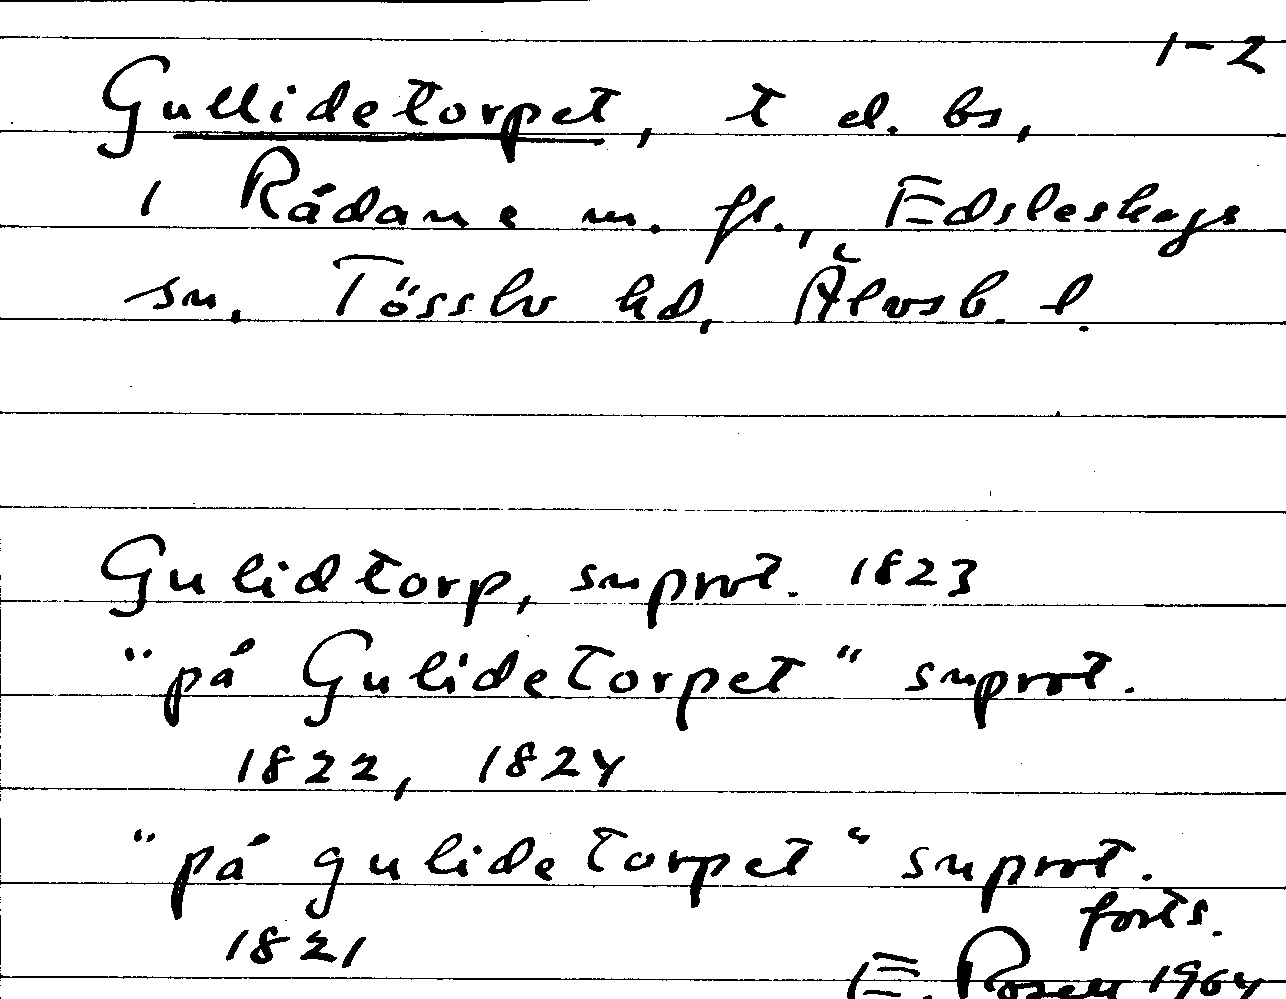 1-2
Gullidetorpet, t el. bs,
i Rådane m. fl., Edsleskogs
sn. Tössbo hd, Älvsb. l.
Gulidtorp, snprot. 1823
"på Gulidetorpet" snprot.
1822, 1824
"på gulidetorpet" snprot.
1821
forts.
E. Rosell 1964